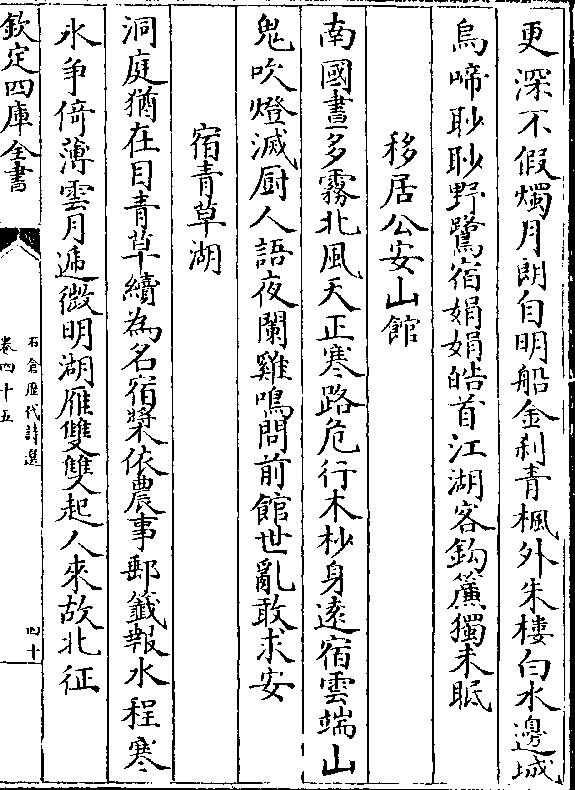 更深不假燭月朗自明船金刹青楓外朱樓白水邊城
烏啼眇眇野鷺宿娟娟皓首江湖客鈎簾獨未眠
移居公安山館
南國晝多霧北風天正寒路危行木杪身逺宿雲端山
鬼吹燈滅厨人語夜闌雞鳴問前館世亂敢求安
宿青草湖
洞庭猶在目青草續為名宿槳依農事郵籤報水程寒
氷争倚薄雲月逓微明湖雁雙雙起人來故北征
欽定四庫全書
石倉歴代詩選
卷四十五
四十